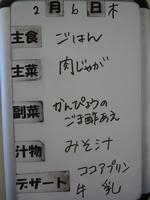 2月6日木
主食 ごはん
主菜 肉じゃが
副菜 かんぴょうの
ごま酢あえ
汁物 みそ汁
デザート ココアプリン
牛乳